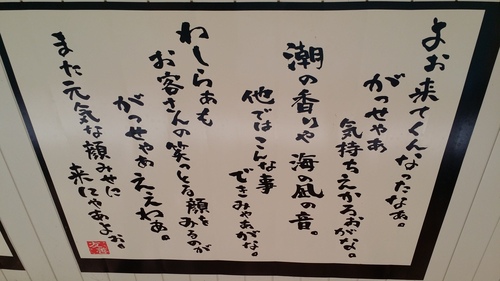 よお来てくんなったなぁ。
がっせゃあ
気持ちえかろおがな。
潮の香りや海の風の音。
他ではこんな事
できみゃあがな。
わしらぁも
お客さんの笑っとる顔を
みるのが
がっせゃあええわぁ。
また元気な顔みせに
来にゃあよぉ。